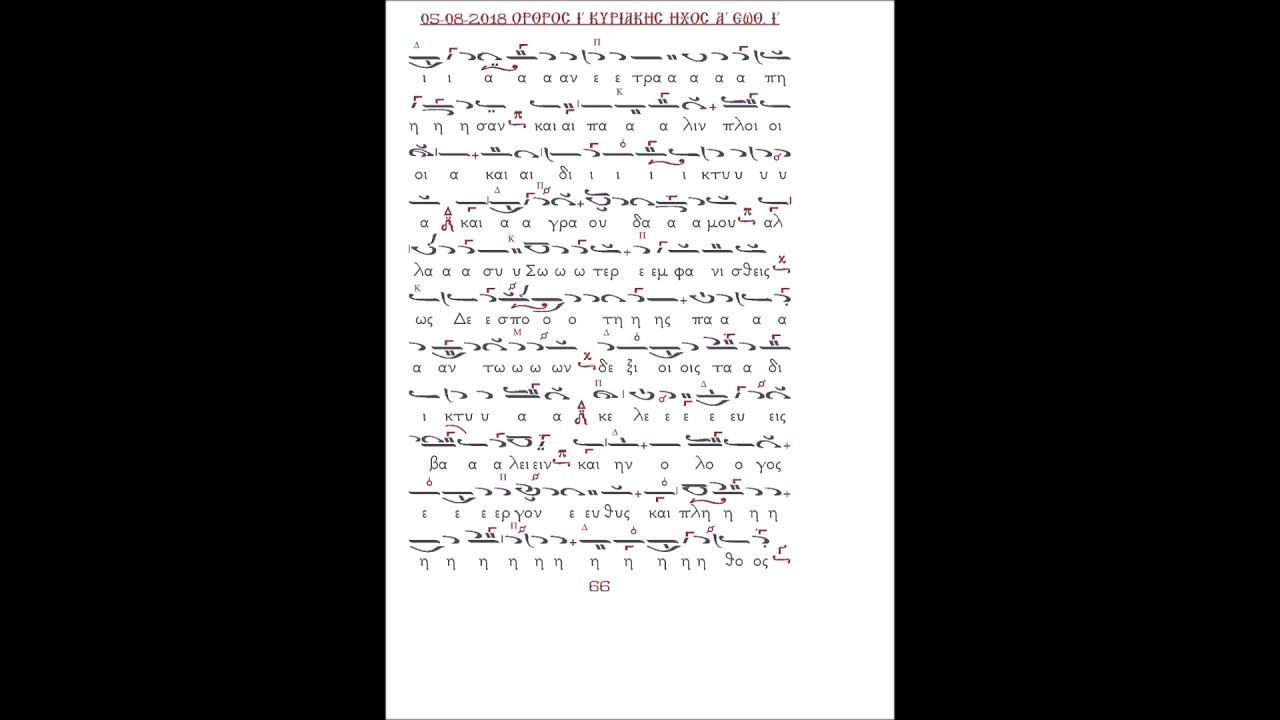 05-08-2018 ΟΡΘΡΟΣ Ι΄ ΚΥΡΙΑΚΗΣ ΗΧΟΣ Α΄ ΕΩΘ. Ι΄
ι ι α α α αν ε ε τρα α α α α πη
η η η σαν και αι πα α α λιν πλοι οι
οι α και αι δι ι ι ι ι κτυ υ υ υ
α και α α γρα ου δα α α μου αλ
λα α α συ υ Σω ω ω τερ ε εμ φα νι σθεις
ως Δε ε σπο ο ο τη η ης πα α α α
α αν τω ω ω ων δε ξι οι οις τα α δι
ι κτυ υ α α κε λε ε ε ε ευ εις
βα α α λει ειν και ην ο λο ο γος
ε ε ε ερ γον ε ευ θυς και πλη η η η
η η η η η η η η η η θο ος
66